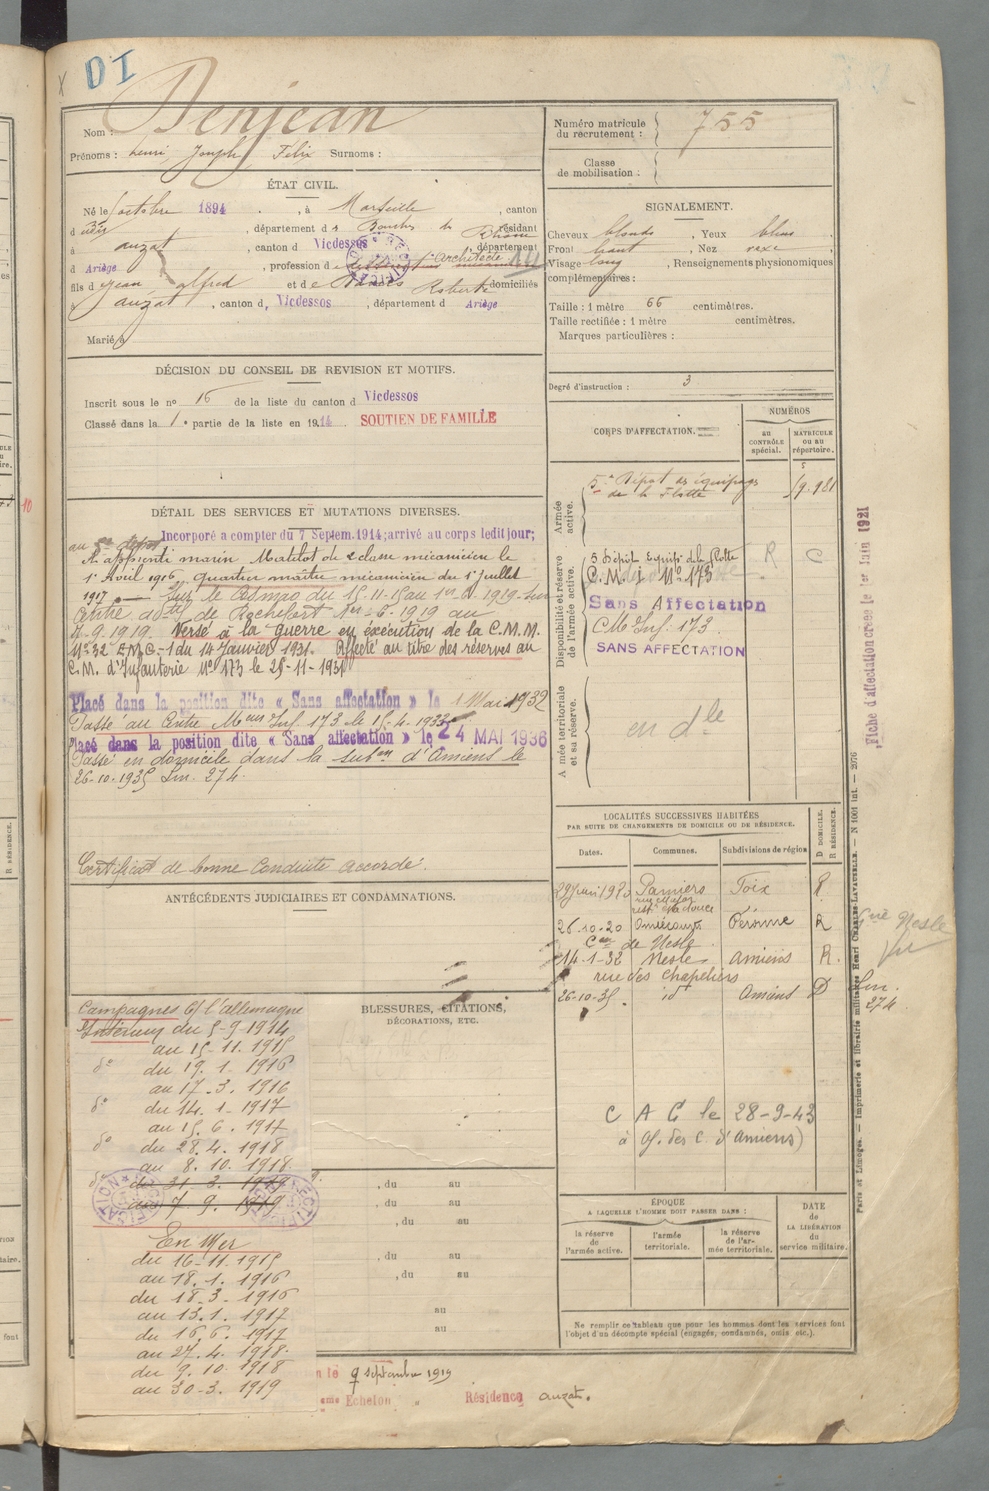 DI
Nom : Denjean
Prénoms : Henri Joseph Félix Surnoms :
Numéro matricule du recrutement : 755
Classe de mobilisation :
ÉTAT CIVIL.
Né le octobre 1894, à Marseille, canton
d dudit, département des Bouches du Rhône, résidant
à auzat, canton d Vicdessos, département
d Ariège, profession d Architecte
fils d Jean alfred et de domiciliés
à auzat, canton d Vicdessos, département d Ariège
Marié à
SIGNALEMENT.
Cheveux blonds, Yeux bleus
Front haut, Nez
Visage long, Renseignements physionomiques
complémentaires :
Taille : 1 mètre 66 centimètres.
Taille rectifiée : 1 mètre centimètres.
Marques particulières :
Degré d'instruction : 3
DÉCISION DU CONSEIL DE REVISION ET MOTIFS.
Inscrit sous le nº 16 de la liste du canton d Vicdessos
Classé dans la 1e partie de la liste en 1914. SOUTIEN DE FAMILLE
CORPS D'AFFECTATION.
NUMÉROS
au CONTRÔLE spécial.
MATRICULE ou au répertoire.
Armée active.
5e Dépôt des équipages de la Flotte 19.981
Disponibilité et réserve de l'armée active.
5 Dépôt Equip. d. l. Flotte R C
C. M. I Nº 173
Sans Affectation
CM Inf. 173
SANS AFFECTATION
Armée territoriale et sa réserve.
en dle
DÉTAIL DES SERVICES ET MUTATIONS DIVERSES.
Incorporé à compter du 7 Septem. 1914; arrivé au corps ledit jour;
au 5e dépôt
apprenti marin Matelot de 2 classe mécanicien le
1er Avril 1916, quartier maître mécanicien du 1er Juillet
1917
Centre de Rochefort 1919 au
7.9.1919. Versé à la guerre en exécution de la C.M.M.
Nº 32 E.M.G.-1 du 14 Janvier 1931. Affecté au titre des réserves au
C.M. d'Infanterie Nº 173 le 25-11-1931
Placé dans la position dite « Sans affectation » le 1 Mai 1932
Passé au Centre Mon Inf. 173 le 15.4.1933
Placé dans la position dite « Sans affectation » le 24 MAI 1936
Passé en domicile dans la subon d'Amiens le
26-10-1935 Lm. 274.
Certificat de bonne conduite accordé.
LOCALITÉS SUCCESSIVES HABITÉES
PAR SUITE DE CHANGEMENTS DE DOMICILE OU DE RÉSIDENCE.
Dates. Communes. Subdivisions de région
D DOMICILE. R RÉSIDENCE.
1920 Pamiers Foix R
26.10.20 Péronne R
Con de Nesle
14-1-32 Nesle Amiens R.
rue des Chapeliers
26-10-35. id Amiens D
Lm. 274
C A C le 28-9-43
à d'Amiens)
ANTÉCÉDENTS JUDICIAIRES ET CONDAMNATIONS.
Campagnes Ct l'allemagne
Intérieur du 5-9-1914
au 15-11.1915
do du 19.1.1916
au 17.3.1916
do du 14.1.1917
au 15.6.1917
do du 28.4.1918
au 8.10.1918
do du 31 3. 1919
au 7 9. 1919
En Mer
du 16-11.1915
au 18.1.1916
du 18-3-1916
au 13.1.1917
du 16.6.1917
au 27.4.1918
du 9.10.1918
au 30-3.1919
BLESSURES, CITATIONS,
DÉCORATIONS, ETC.
, du au
, du au
, du au
, du au
au
au
ÉPOQUE
A LAQUELLE L'HOMME DOIT PASSER DANS :
la réserve de l'armée active.
l'armée territoriale.
la réserve de l'armée territoriale.
DATE de LA LIBÉRATION du service militaire.
Ne remplir ce tableau que pour les hommes dont les services font
l'objet d'un décompte spécial (engagés, condamnés, omis, etc.).
le 9 septembre 1919
Echelon Résidence auzat.
Fiche d'affectation créée le 1er Juin 1921
Paris et Limoges. — Imprimerie et librairie militaires Henri CHARLES-LAVAUZELLE. — N 1001 int. — 2076